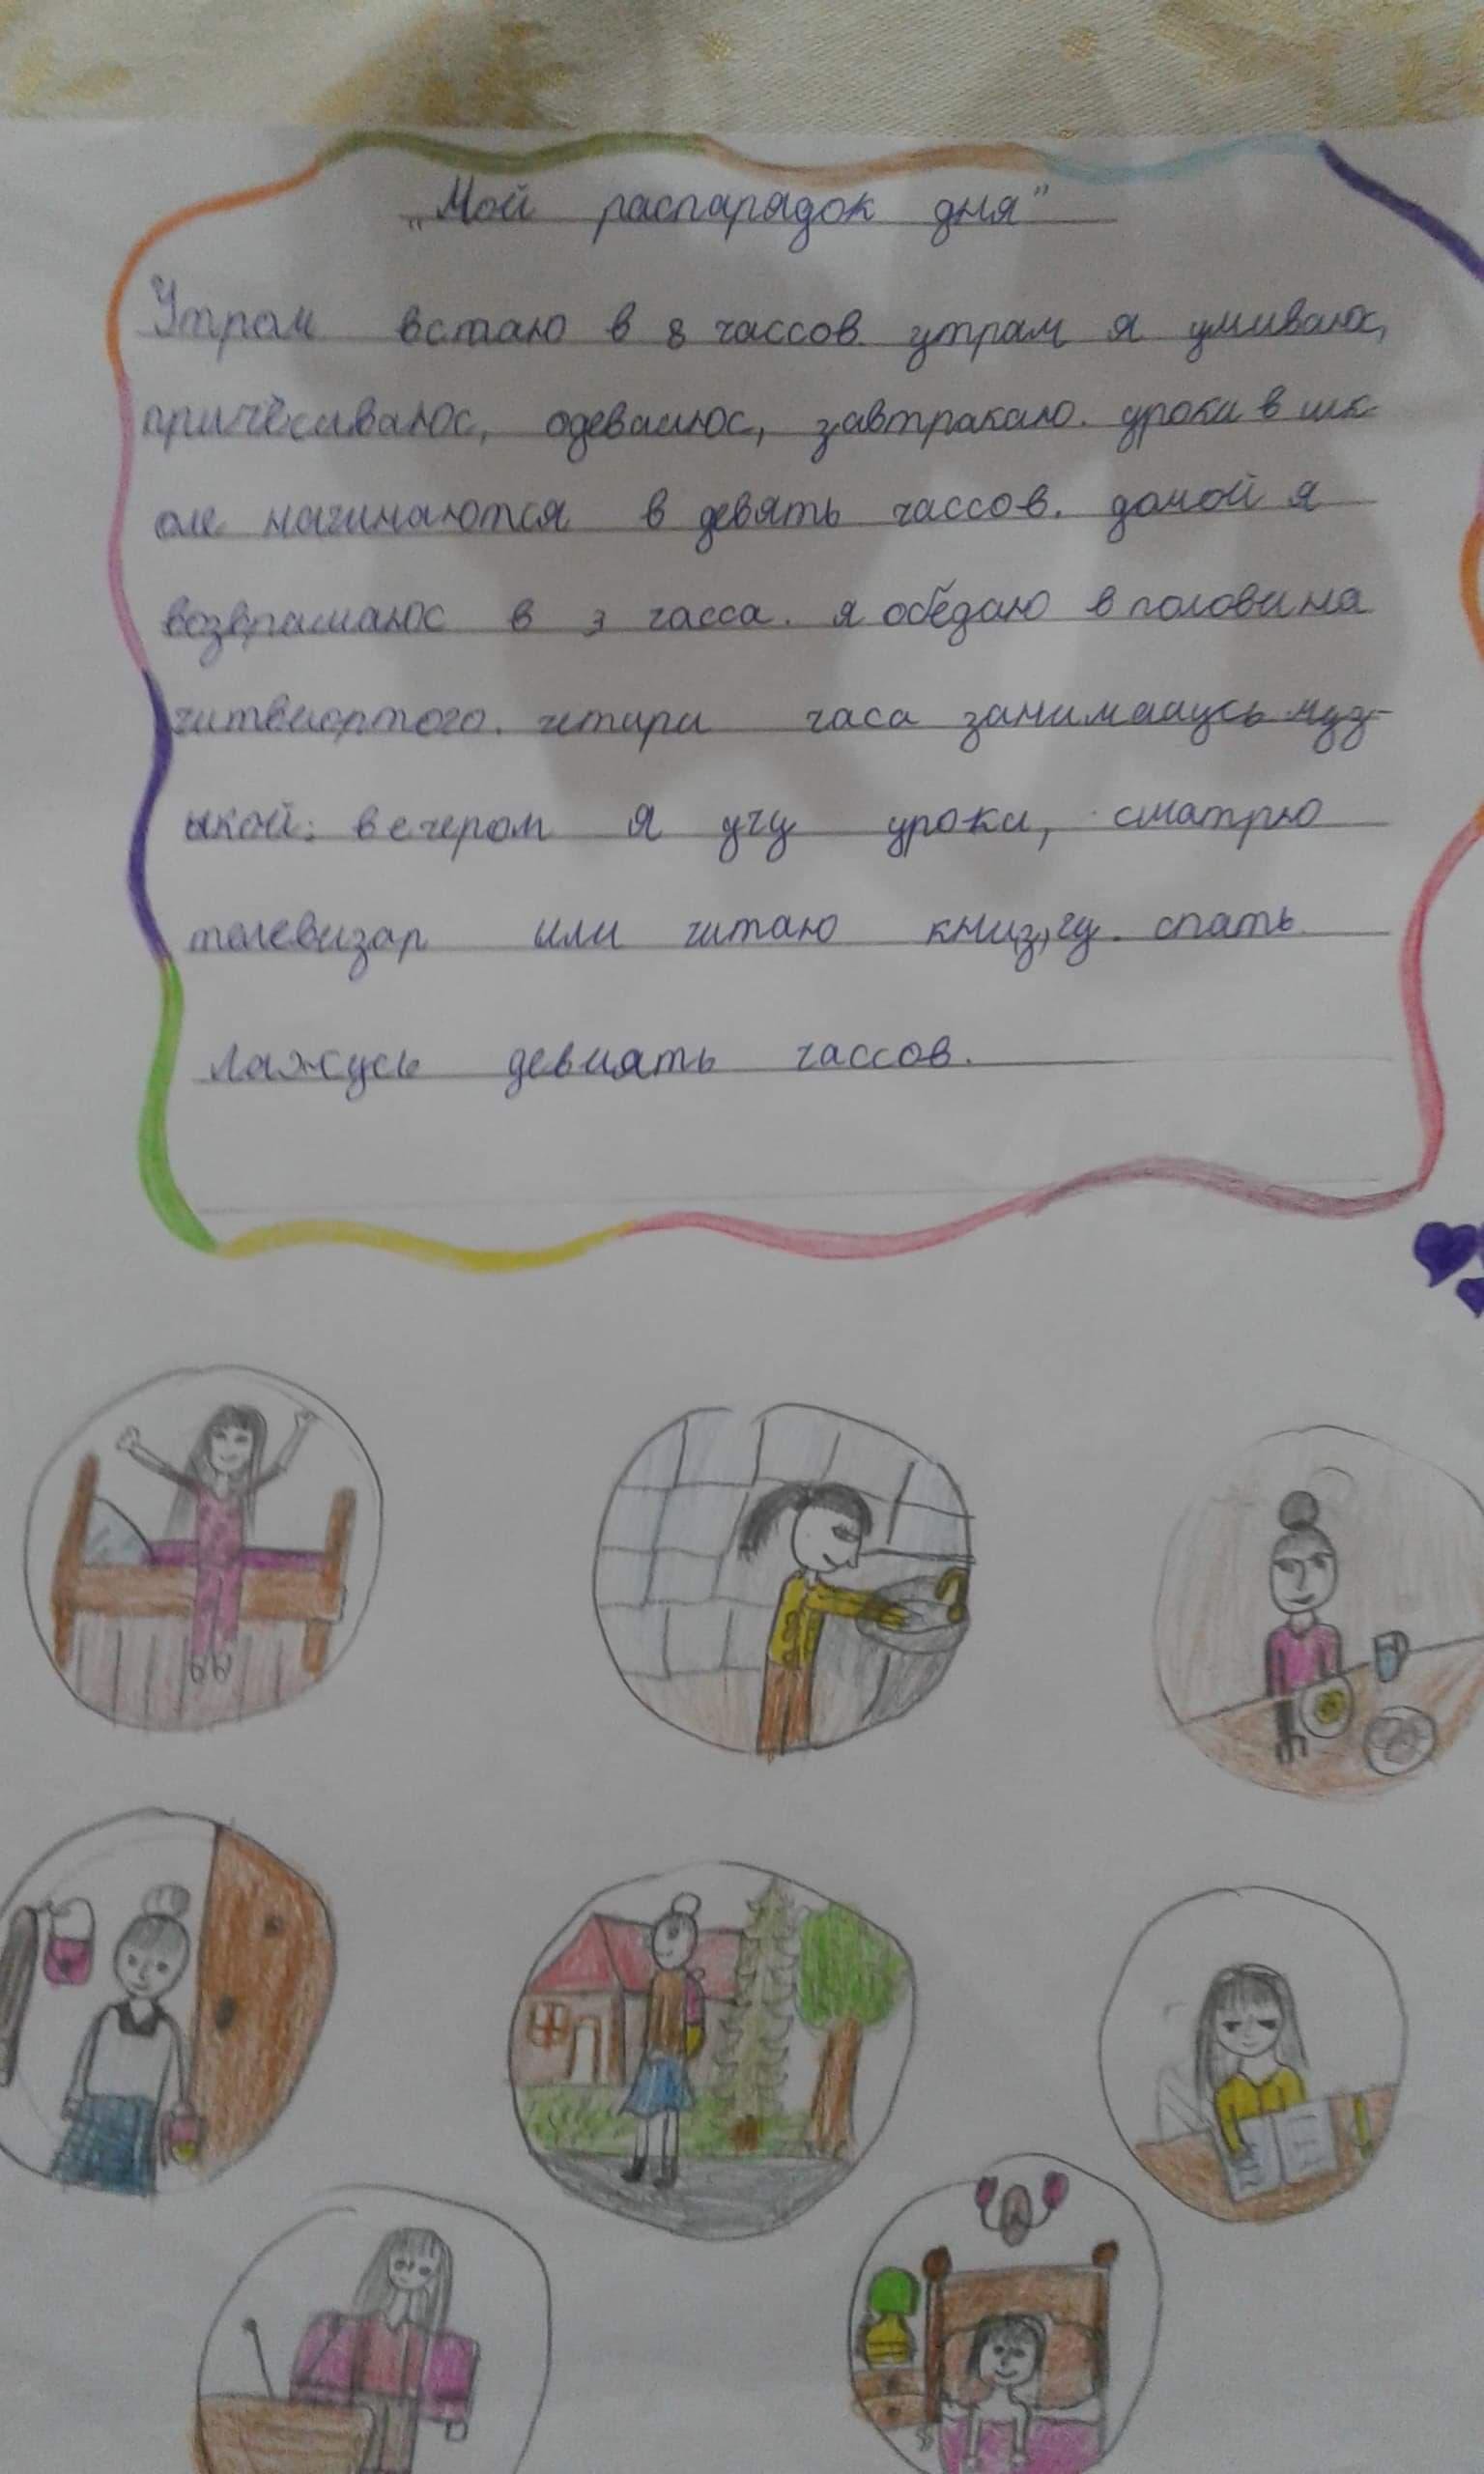 „Мой распарядок дня"
Утрам встаю в 8 чассов. утрам я умиваюс,
причёсиваюс, одеваиюс, завтракаю. уроки в шк
оле начинаются в девять чассов. домой я
возврашаюс в 3 часса. я обедаю в половина
читвиортого. читири часа занимааусь муз-
ыкой. вечером я учу уроки, сматрю
телевизар или читаю книгу. спать
лажусь девиять чассов.